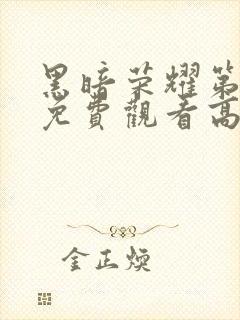 黑暗荣耀第
免費觀看高
金正煥